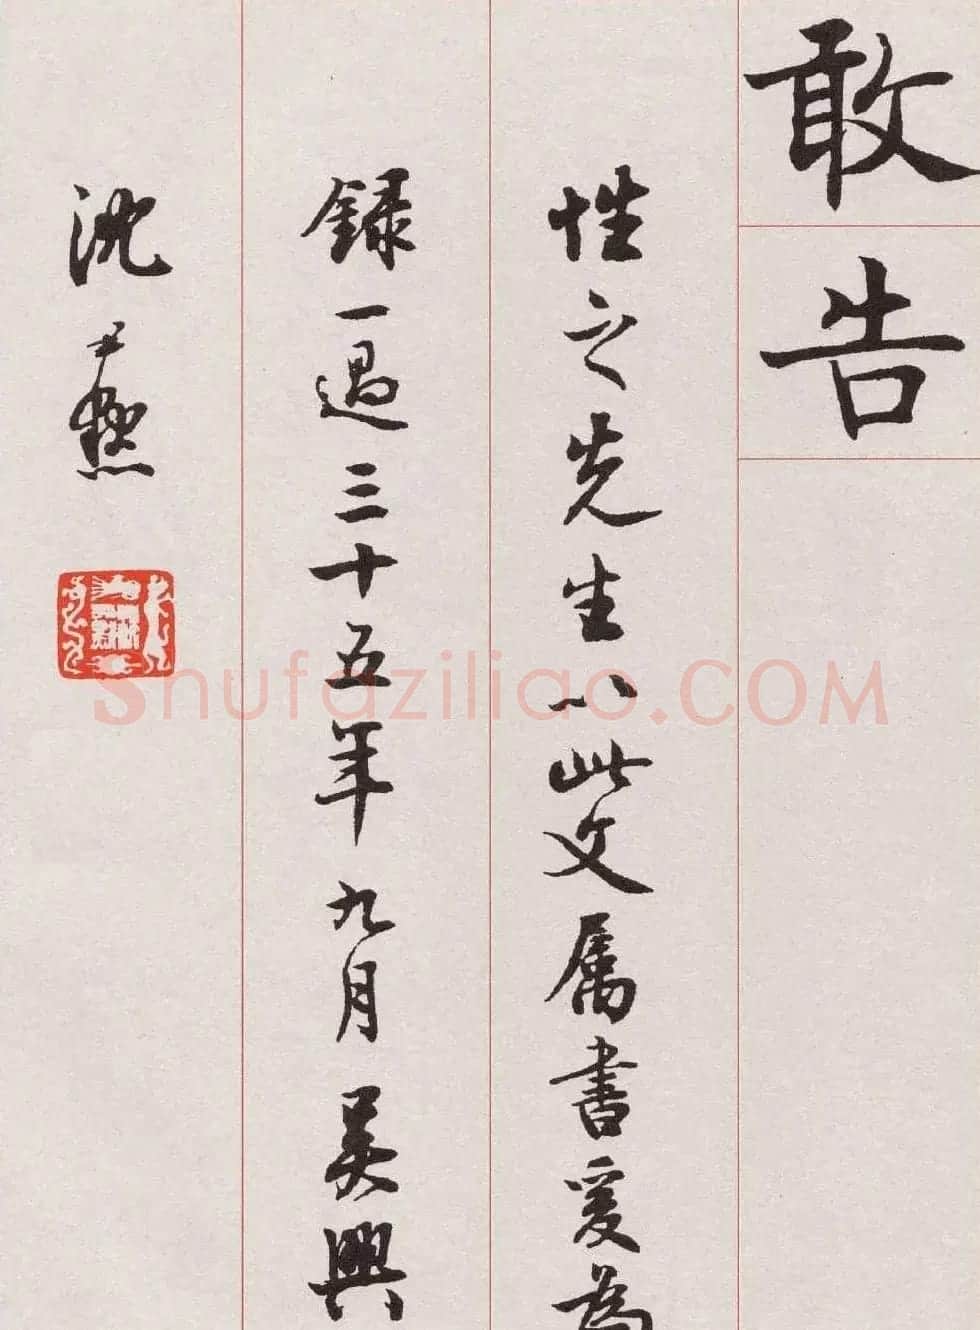 敢告
惟之先生以此文属書爰為
録一過三十五年九月吴興
沈尹默
Shufaziliao.COM